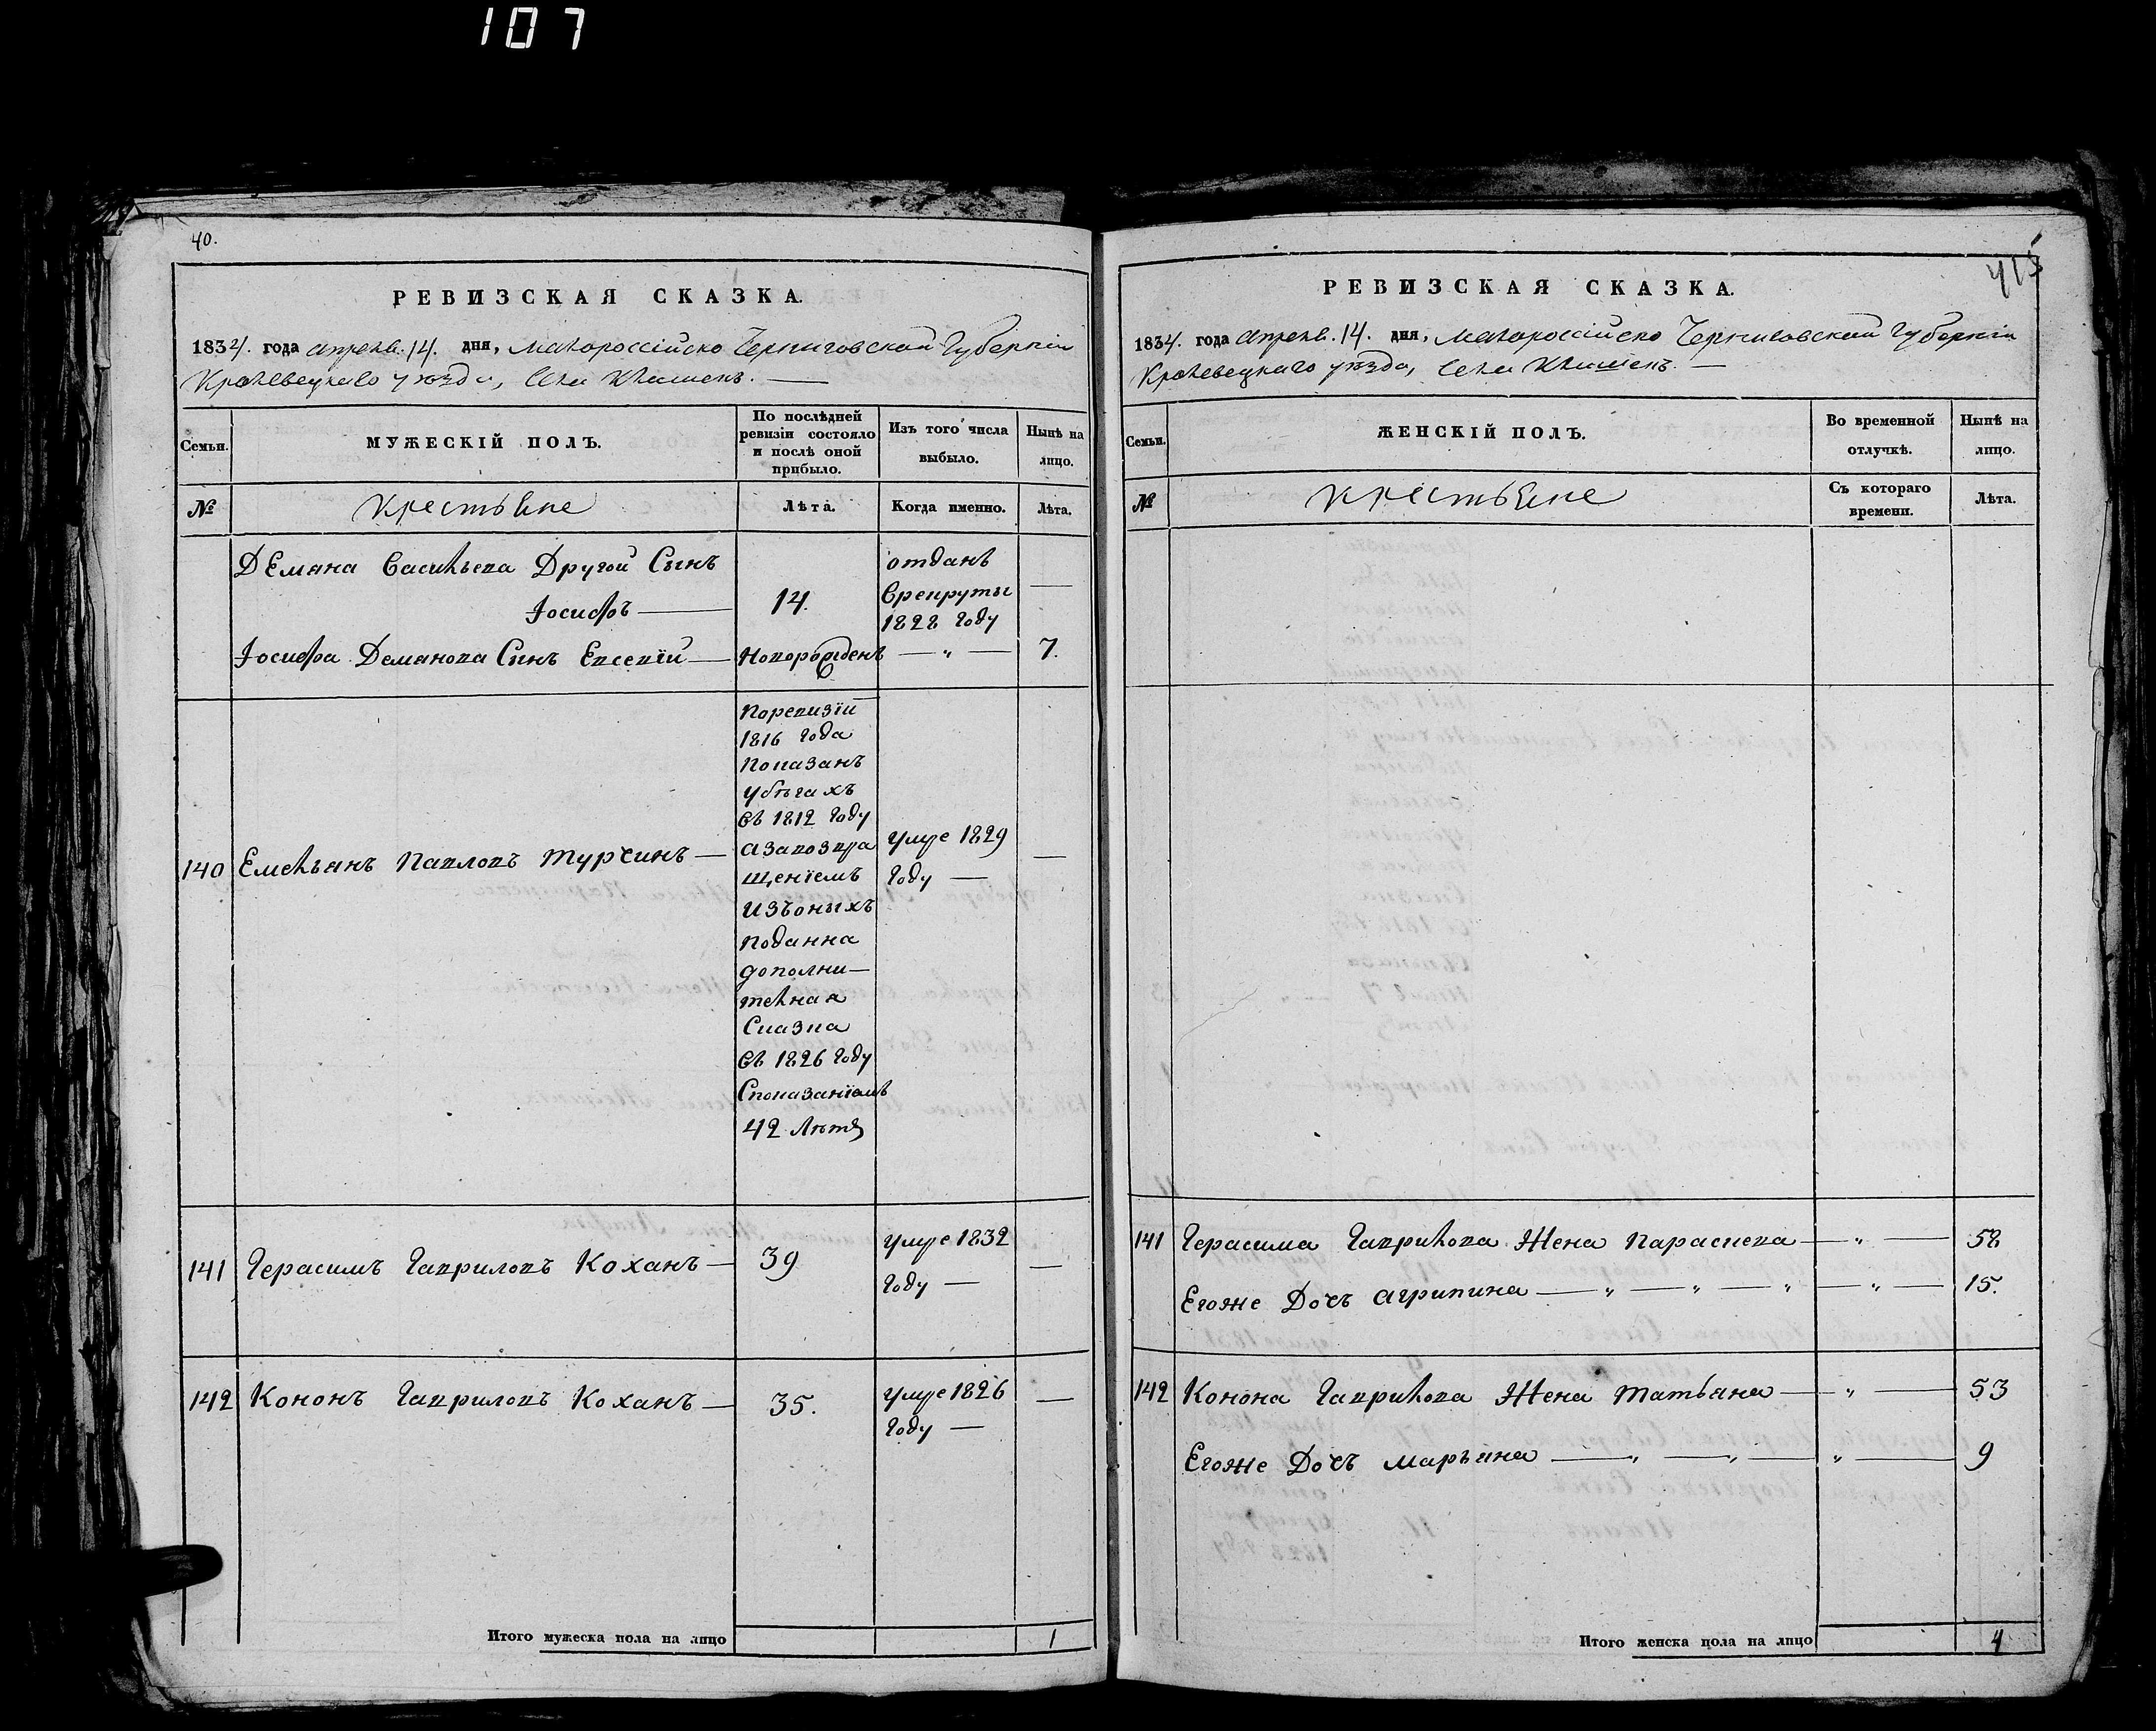 107
40.
РЕВИЗСКАЯ СКАЗКА.
1834. года апреля. 14. дня, Малороссійско Черниговской Губерніи
Кролевецкаго уезда, Села Клишекъ.
Семьи.
МУЖЕСКІЙ ПОЛЪ.
По послѣдней ревизіи состояло и послѣ оной прибыло.
Изъ того числа выбыло.
Нынѣ на лицо.
№
Крестьяне
Лѣта.
Когда именно.
Лѣта.
Демяна Васильева Другой Сынъ
Іосифъ — 14.
отданъ
Врекруты
1828 году —
Іосифа Демянова Сынъ Евсевій — Новорожденъ — „ — 7.
140 Емельянъ Павловъ Турчинъ —
Поревизіи
1816 года
Показанъ
убѣгахъ
съ 1812 году
азавозвра
щеніемъ
Изъоныхъ
поданна
дополни—
телная
Сказка
съ 1826 году
Споказаніемъ
42 Лѣтъ
умре 1829
году — —
141 Герасимъ Гавриловъ Коханъ — 39
умре 1832
году — —
142 Кононъ Гавриловъ Коханъ — 35.
умре 1826
году — —
Итого мужеска пола на лицо 1
415
РЕВИЗСКАЯ СКАЗКА.
1834. года апреля. 14. дня, Малороссійско Черниговской Губерніи
Кролевецкаго уезда, Села Клишекъ. —
Семьи.
ЖЕНСКІЙ ПОЛЪ.
Во временной отлучкѣ.
Нынѣ на лицо.
№
Крестьяне
Съ котораго времени.
Лѣта.
141 Герасима Гаврилова Жена Параскева — „ — 58
Егоже Дочъ Агрипина — „ — „ — „ — „ — 15.
142 Конона Гаврилова Жена Татьяна — „ — 53
Егоже Дочъ Марьяна — „ — „ — „ — 9
Итого женска пола на лицо 4